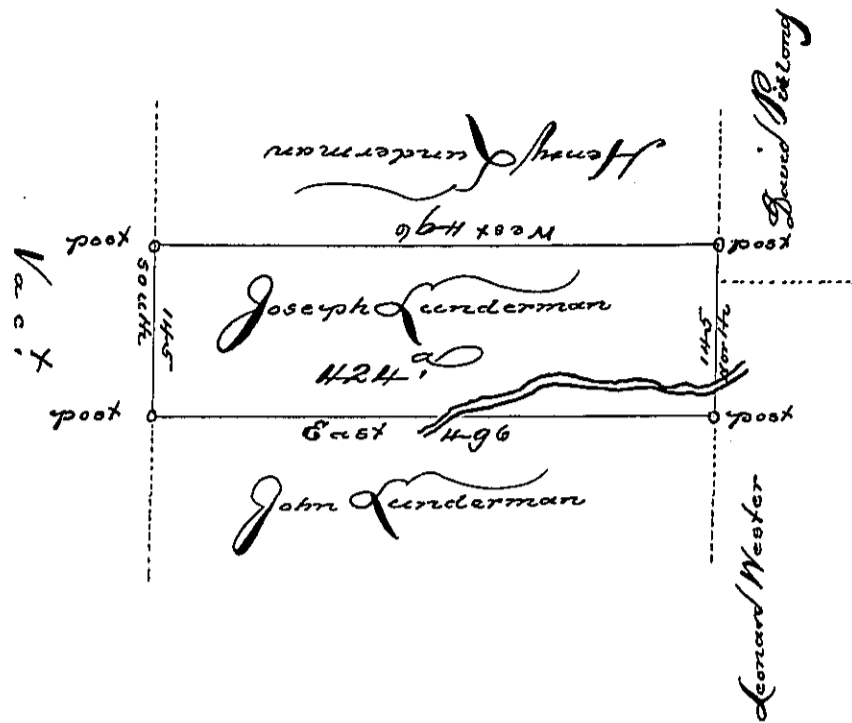 Henry Lunderman
West 496
post
post
Vact
south
145
Joseph Lunderman
424 a
145
north
post
post
East 496
John Lunderman
David
Leonard Wester